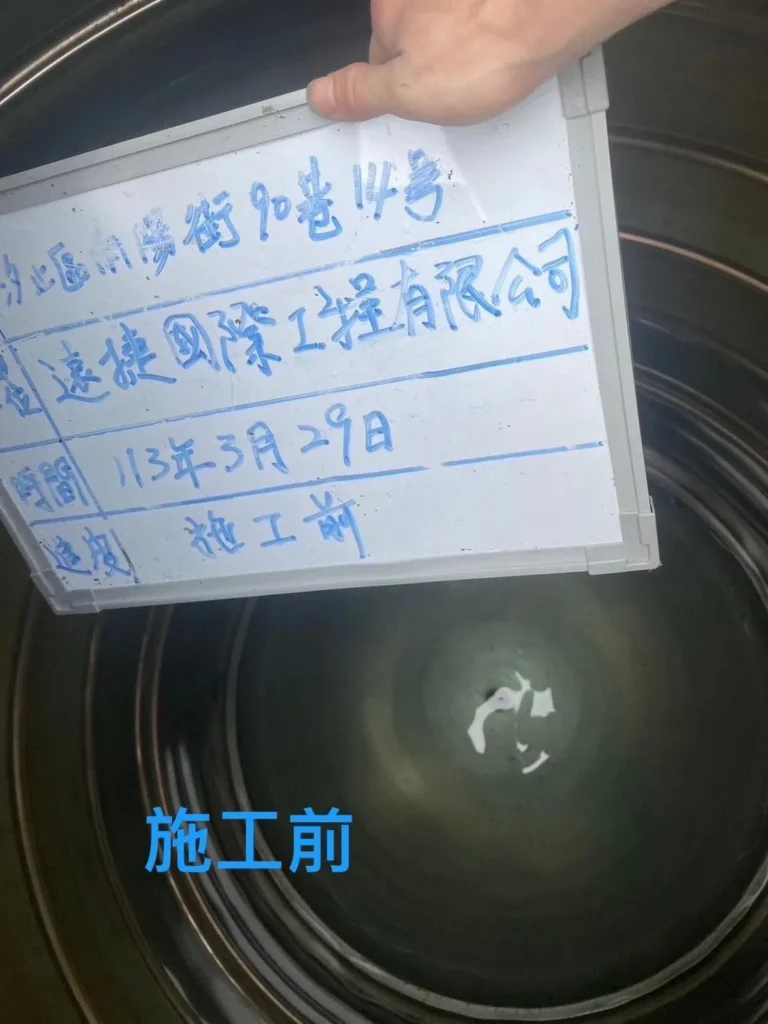 汐止區向陽街90巷14號
單位 遠捷國際工程有限公司
時間 113年3月29日
進度 施工前
施工前